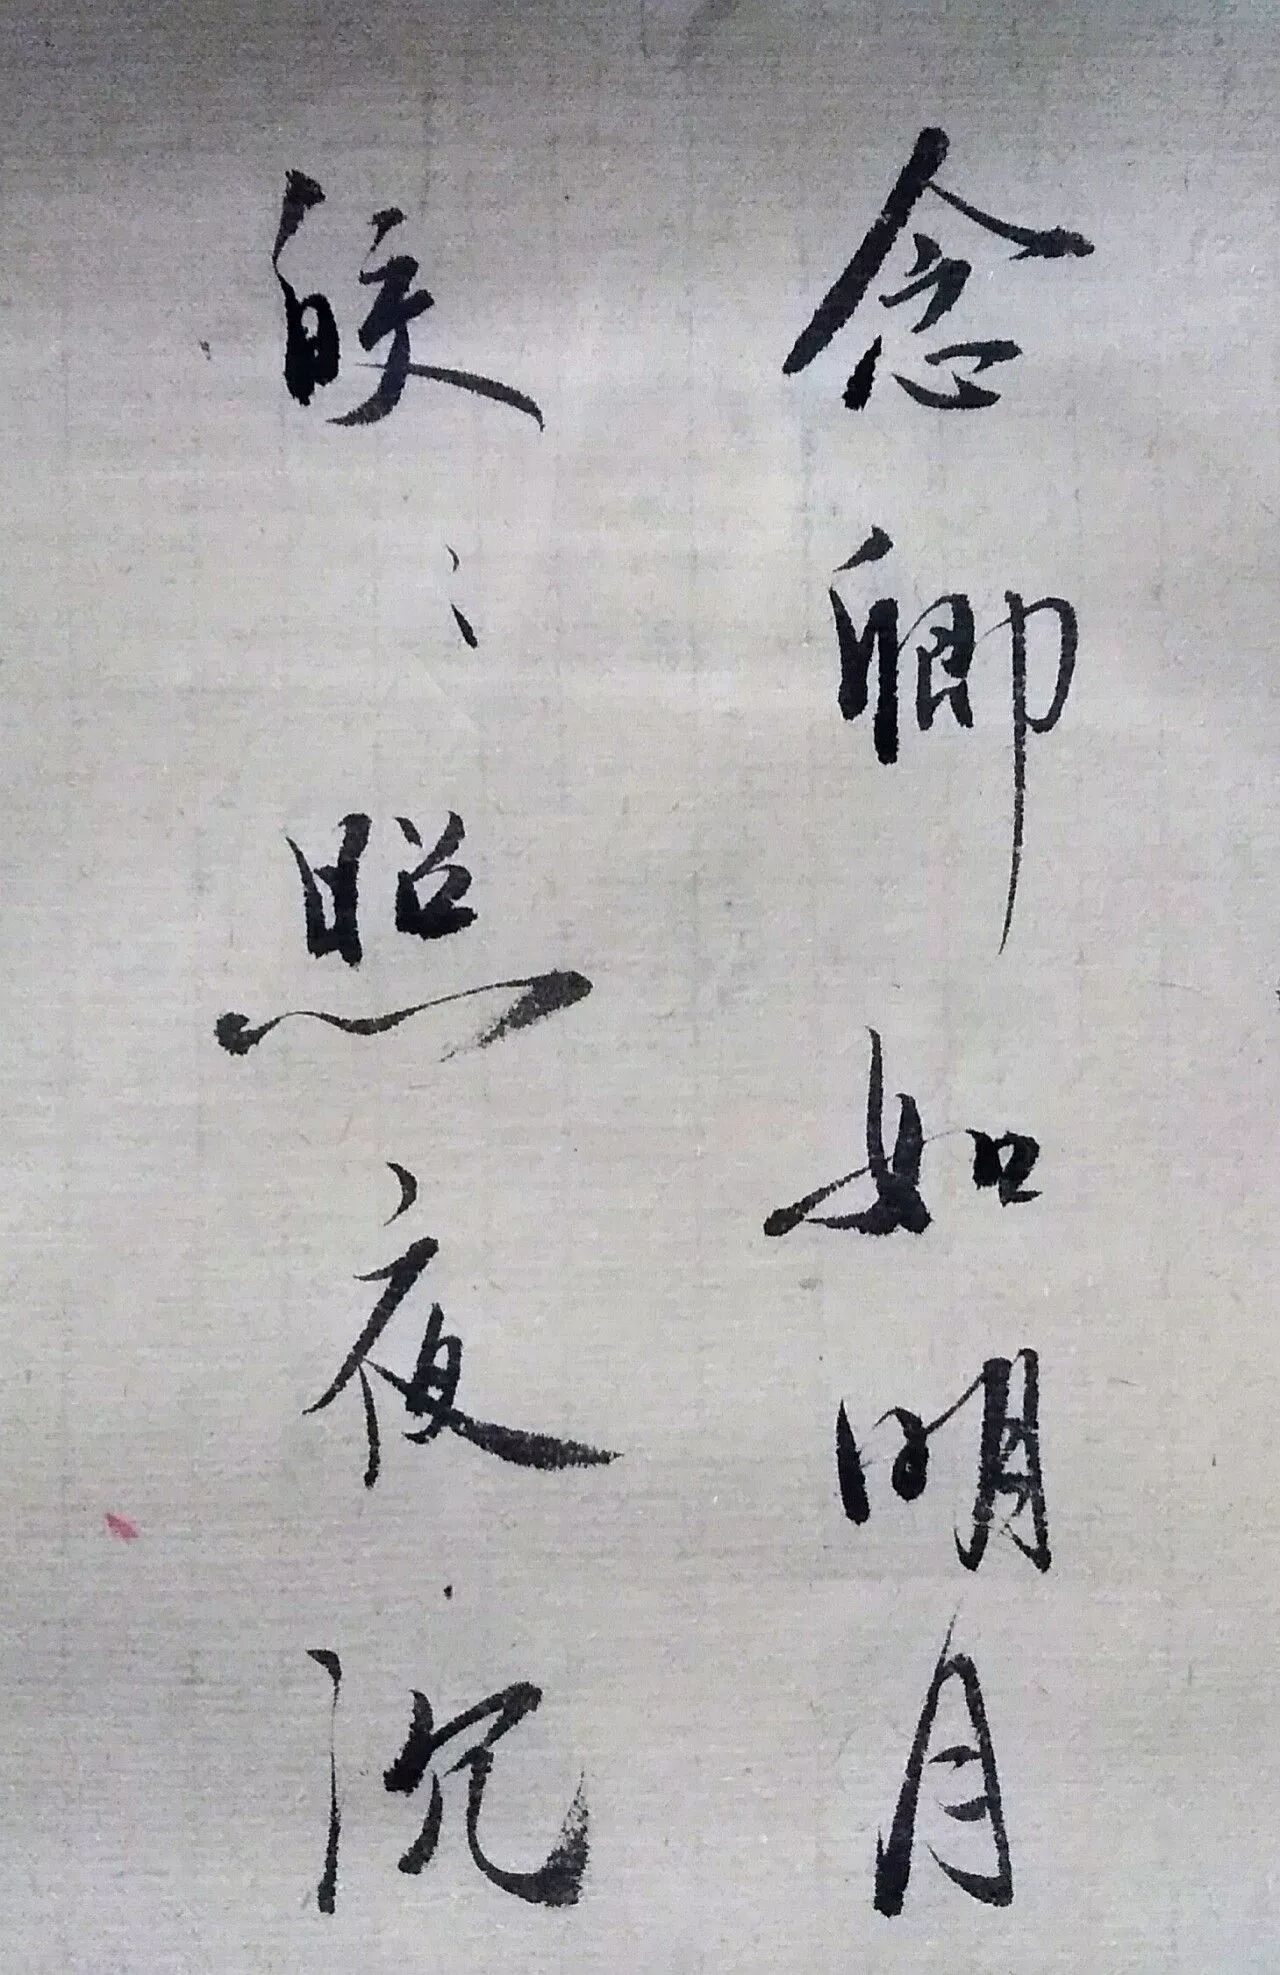 念卿如明月
皎〻照夜沉